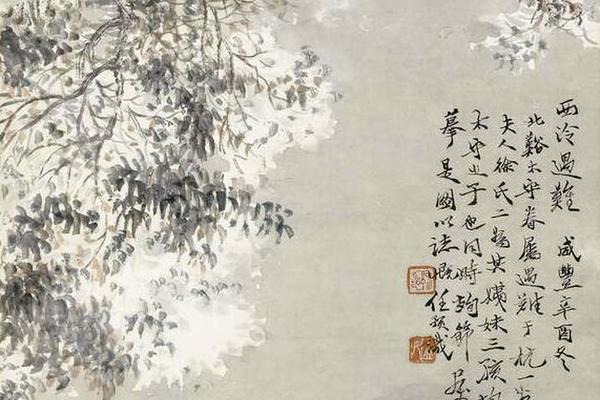 西泠遇難 咸豐辛酉冬
北谿太守眷屬遇難于杭一
夫人徐氏二為其姨妹三孩
太守之子也同時殉節
摹是圖以誌慨 任預識